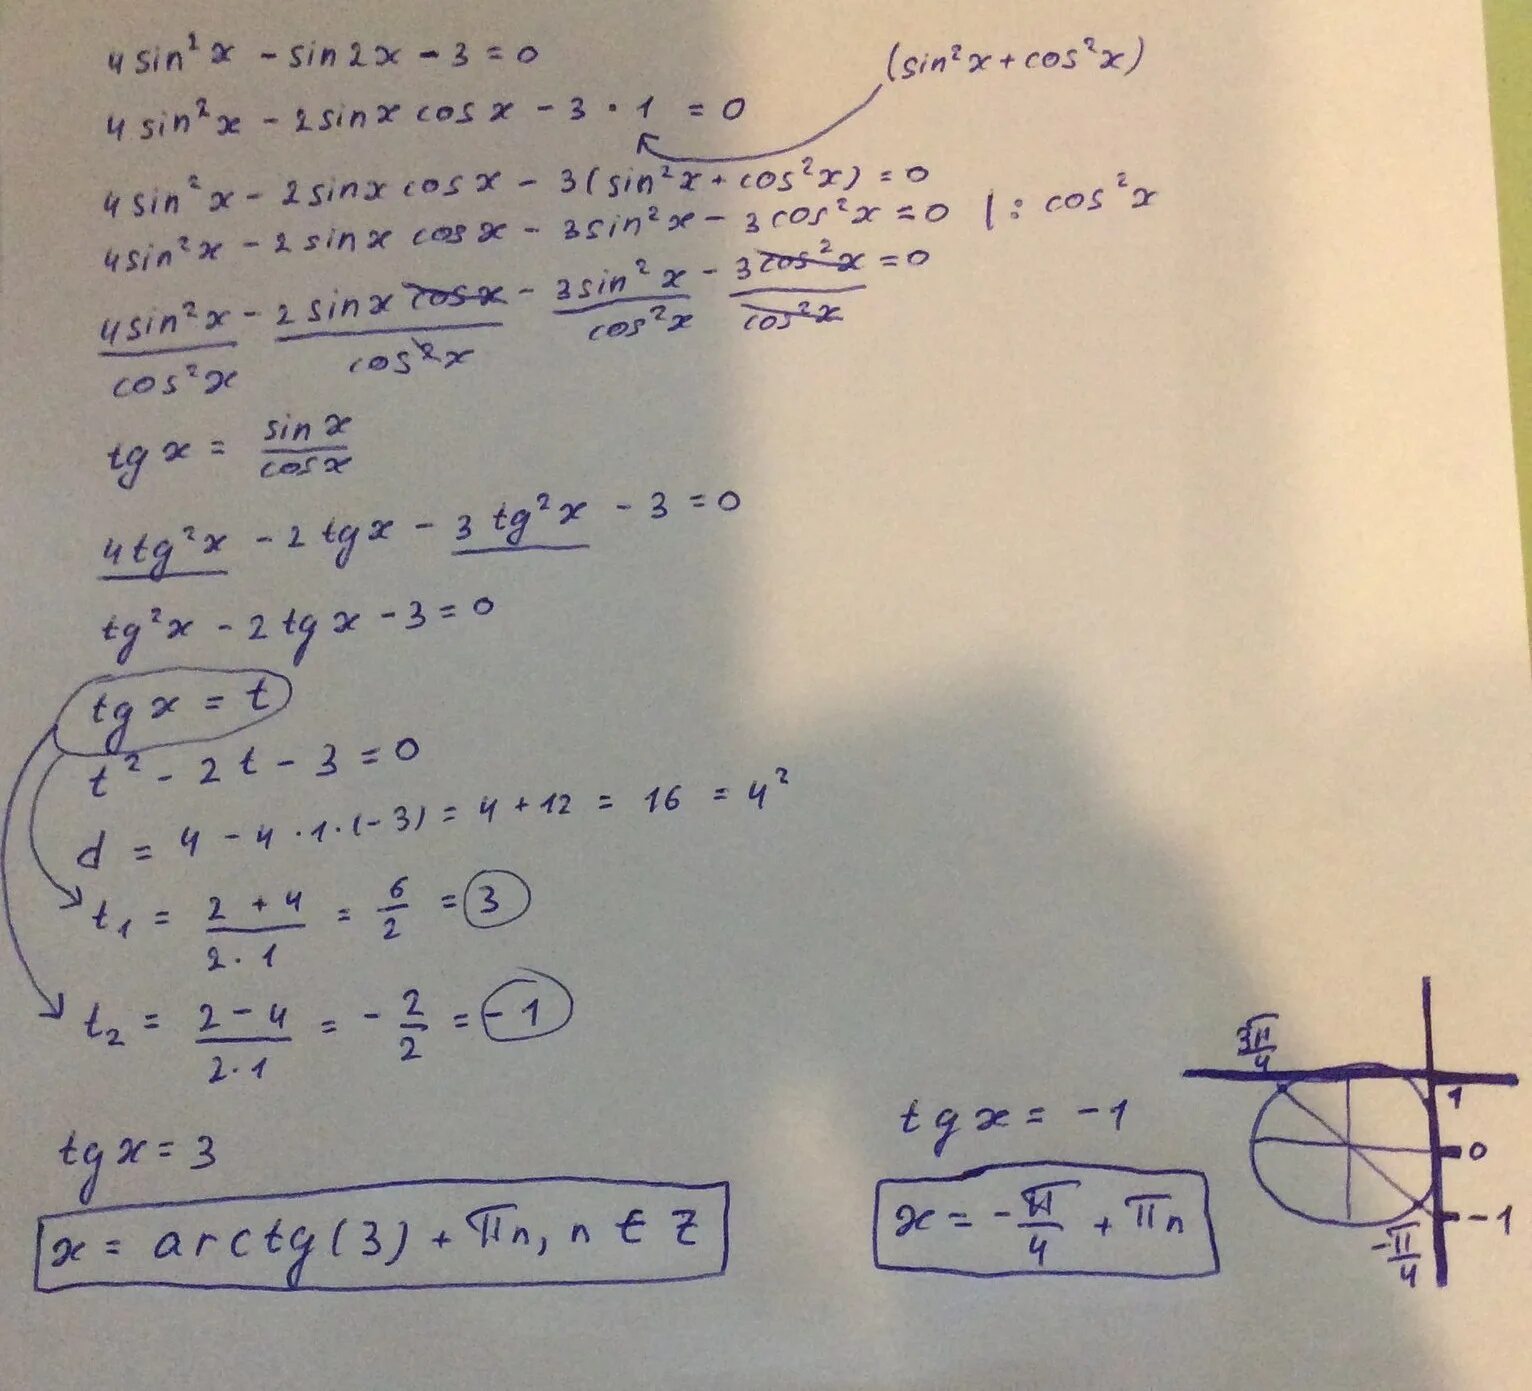 4sin²x - sin2x - 3 = 0
(sin²x + cos²x)
4sin²x - 2sinx cosx - 3 · 1 = 0
4sin²x - 2sinx cosx - 3(sin²x + cos²x) = 0
4sin²x - 2sinx cosx - 3sin²x - 3cos²x = 0 | : cos²x
4sin²x/cos²x - 2sinx cosx/cos²x - 3sin²x/cos²x - 3cos²x/cos²x = 0
tgx = sinx/cosx
4tg²x - 2tgx - 3tg²x - 3 = 0
tg²x - 2tgx - 3 = 0
tgx = t
t² - 2t - 3 = 0
d = 4 - 4·1·(-3) = 4 + 12 = 16 = 4²
t₁ = (2 + 4)/(2·1) = 6/2 = 3
t₂ = (2 - 4)/(2·1) = -2/2 = -1
tgx = 3
x = arctg(3) + πn, n ∈ Z
tgx = -1
x = -π/4 + πn
3π/4
1
0
-1
-π/4